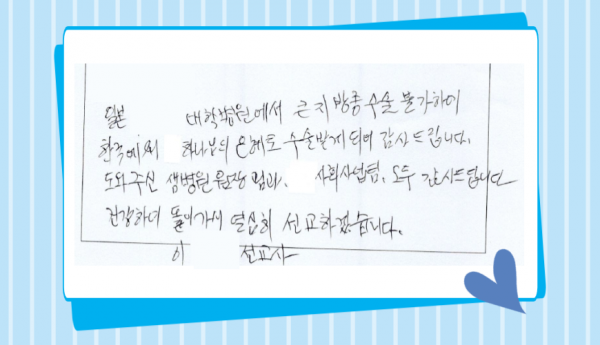 일본 대학병원에서 큰 지방종 수술 불가하여
한국에 와 하나님의 은혜로 수술받게 되어 감사드립니다.
도와주신 샘병원 원장님과, 사회사업팀, 모두 감사드립니다
건강하여 돌아가서 열심히 선교하겠습니다.
이 선교사